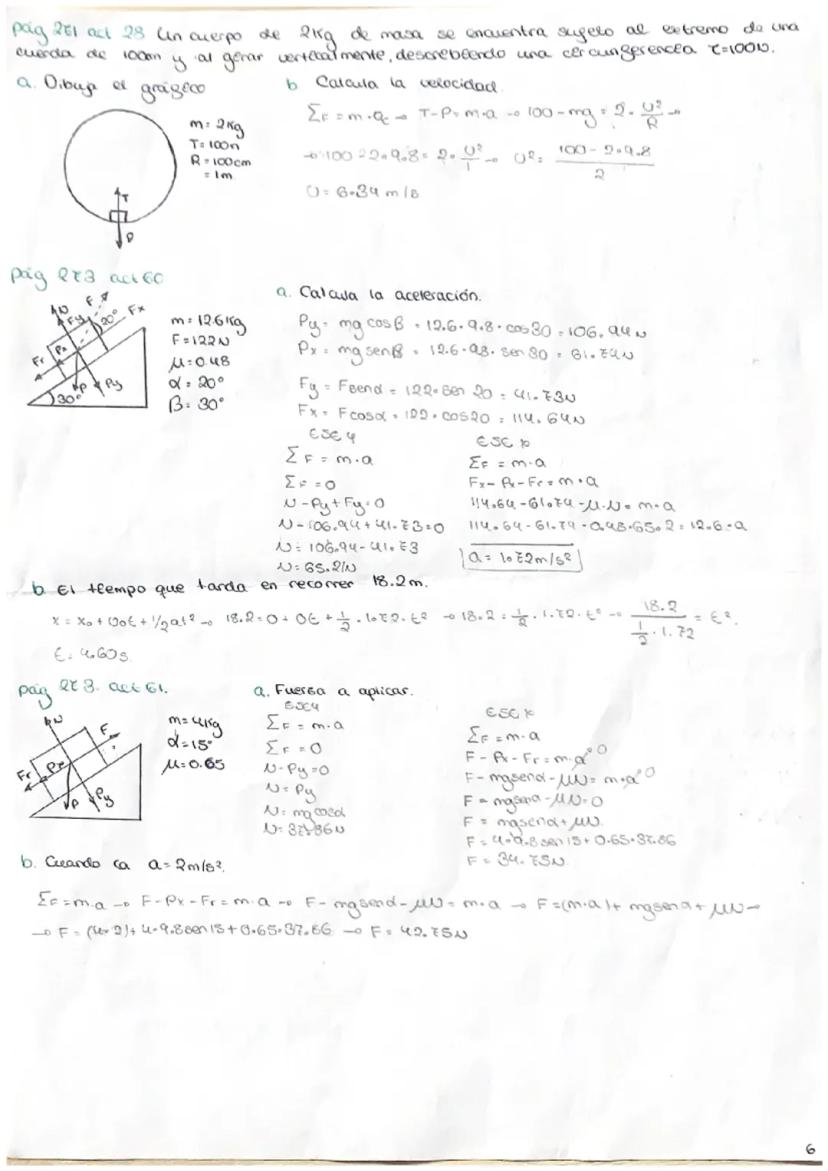 pág 271 act 28 Un cuerpo de 2kg de masa se encuentra sujeto al extremo de una
cuerda de 100cm y al girar verticalmente, describiendo una circunferencia T=100N.
a. Dibuja el gráfico
m= 2kg
T= 100n
R= 100cm
= 1m
T
P
b Calcula la velocidad.
ΣF = m·ac → T-P=m·a → 100-mg = 2·v²/R →
→ 100-2·9.8= 2·v²/1 → v²= (100-2·9.8)/2
v= 6.34 m/s
pág 273 act 60
N Fy F 20° Fx
Fr Px
P Py
30°
m= 12.6kg
F=122N
μ=0.48
α= 20°
β= 30°
a. Calcula la aceleración.
Py= mg cosβ = 12.6·9.8·cos30 = 106.94N
Px= mg senβ = 12.6·9.8·sen30 = 61.74N
Fy= Fsenα = 122·sen 20 = 41.73N
Fx= Fcosα = 122·cos20 = 114.64N
EJE y
ΣF = m·a
ΣF = 0
N-Py+Fy=0
N-106.94+41.73=0
N= 106.94-41.73
N= 65.21N
EJE x
ΣF = m·a
Fx-Px-Fr= m·a
114.64-61.74-μ·N= m·a
114.64-61.74-0.48·65.2=12.6·a
a= 1.72m/s²
b. El tiempo que tarda en recorrer 18.2m.
x= x₀+v₀t+1/2at² → 18.2=0+0t+1/2·1.72·t² → 18.2=1/2·1.72·t² → 18.2/(1/2·1.72) = t².
t= 4.60s
pág 273. act 61.
N F
Fr Px
P Py
m=4kg
α=15°
μ=0.65
a. Fuerza a aplicar.
EJE y
ΣF = m·a
ΣF = 0
N-Py=0
N= Py
N= mg cosα
N= 37.86N
EJE x
ΣF = m·a
F-Px-Fr=m·a⁰
F-mgsenα-μN= m·a⁰
F-mgsenα-μN=0
F= mgsenα+μN
F= 4·9.8sen15+0.65·37.86
F= 34.75N
b. Cuando la a= 2m/s².
ΣF=m·a → F-Px-Fr= m·a → F-mgsenα-μN= m·a → F=(m·a)+mgsenα+μN→
→ F= (4·2)+4·9.8sen15+0.65·37.86 → F= 42.75N
6